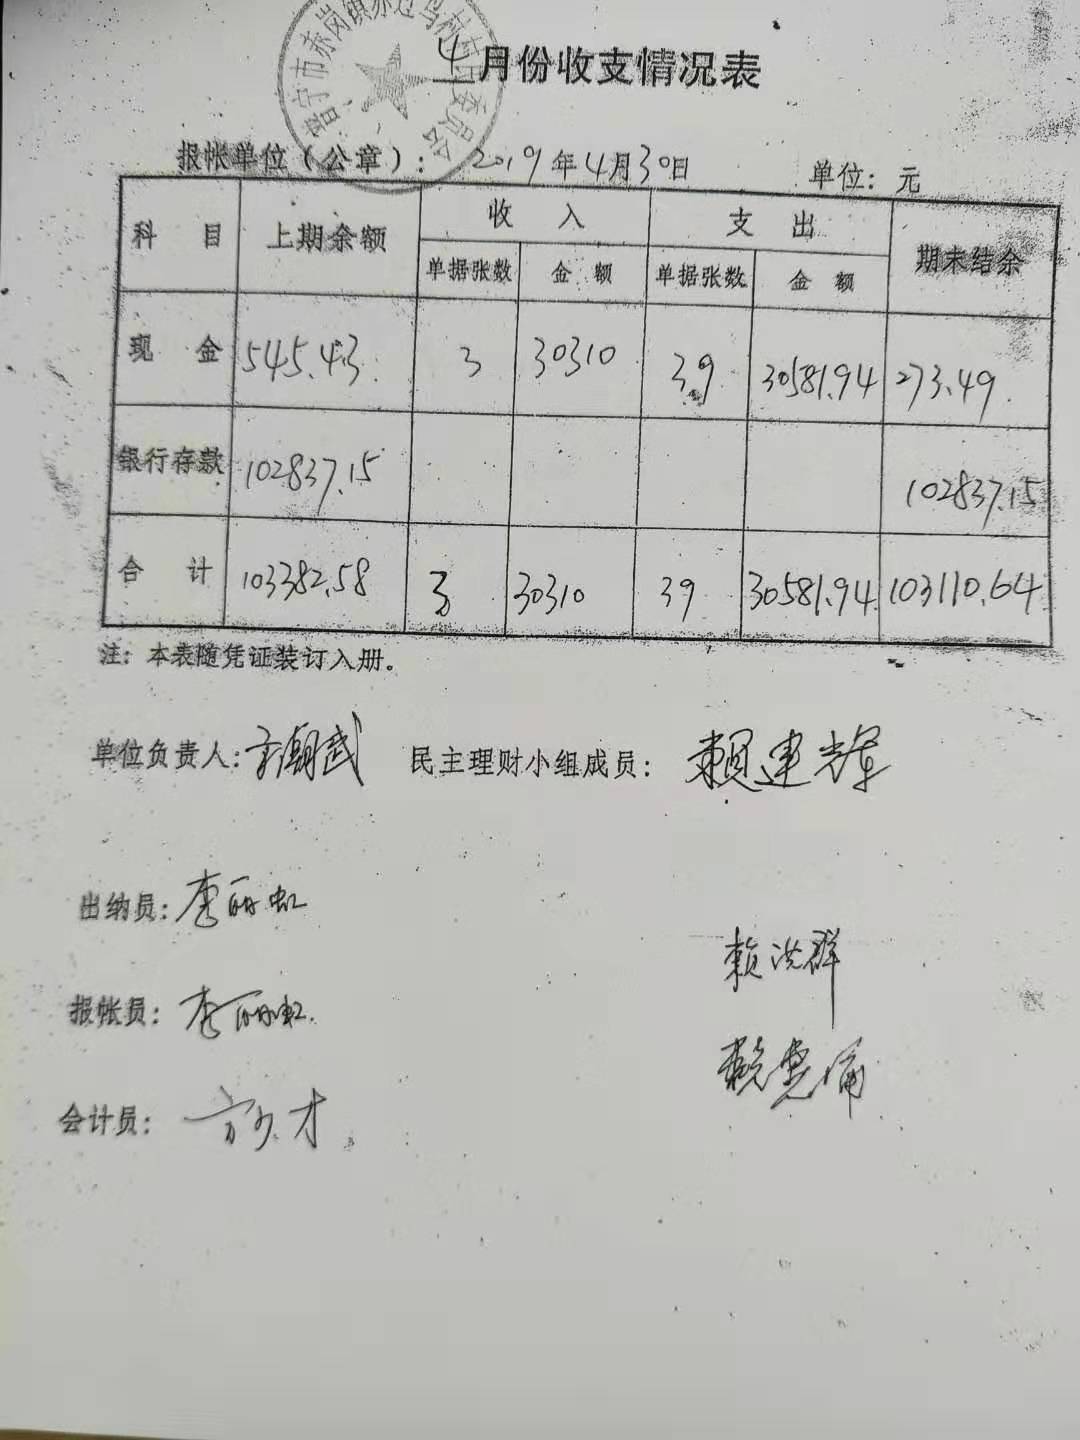 4月份收支情况表
报帐单位（公章）： 2019年4月30日 单位：元
科目 上期余额 收入 支出 期末结余
单据张数 金额 单据张数 金额
现金 545.43 3 30310 39 30581.94 273.49
银行存款 102837.15 102837.15
合计 103382.58 3 30310 39 30581.94 103110.64
注：本表随凭证装订入册。
单位负责人： 民主理财小组成员： 赖建辉
出纳员：李丽虹
赖洪群
报帐员：李丽虹
会计员：